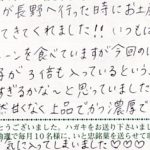 が長野へ行った時にお土
てきてくれました!! いつもは
ーンを食べていますが今回の
が3倍も入っているという
ぎるかな〜と思っていました
甘くなく上品でかつ濃厚で
気に入ってしまいました♡♡♡
とうございました。ハガキをお送り下さいまし
で毎月10名様に、いと忠銘菓を送らせて頂